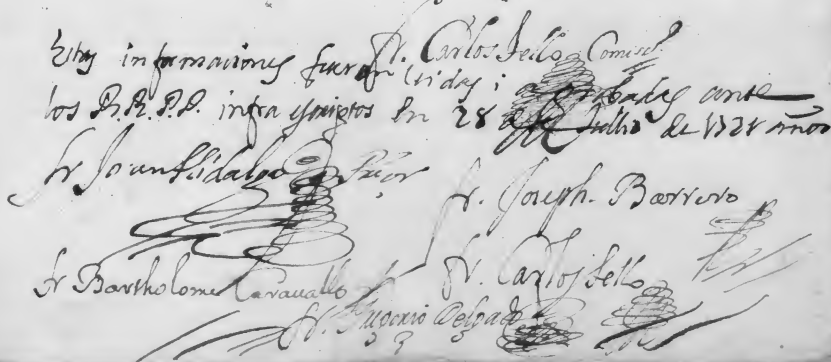 Fr. Carlos Sello Comiss.
Estas informaciones fueron leidas i aprobadas ante
los R.R.P.P. infra escriptos en 28 de Jullio de años
Fr Joan Hidalgo Prior
Fr. Joseph. Borrero
Fr Bartholome Caravallo
Fr. Carlos Sello
Fr. Gregorio Delgado